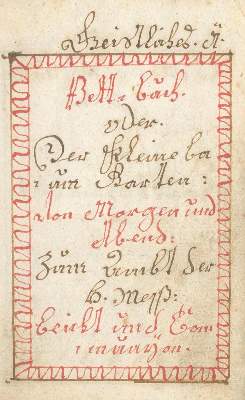 Geistliches. A
Bett, buch.
oder.
Der Kleine ba
um Garten:
Von Morgen und
Abend:
Zum Ambt der
H. Mess:
beicht und Com
munion.